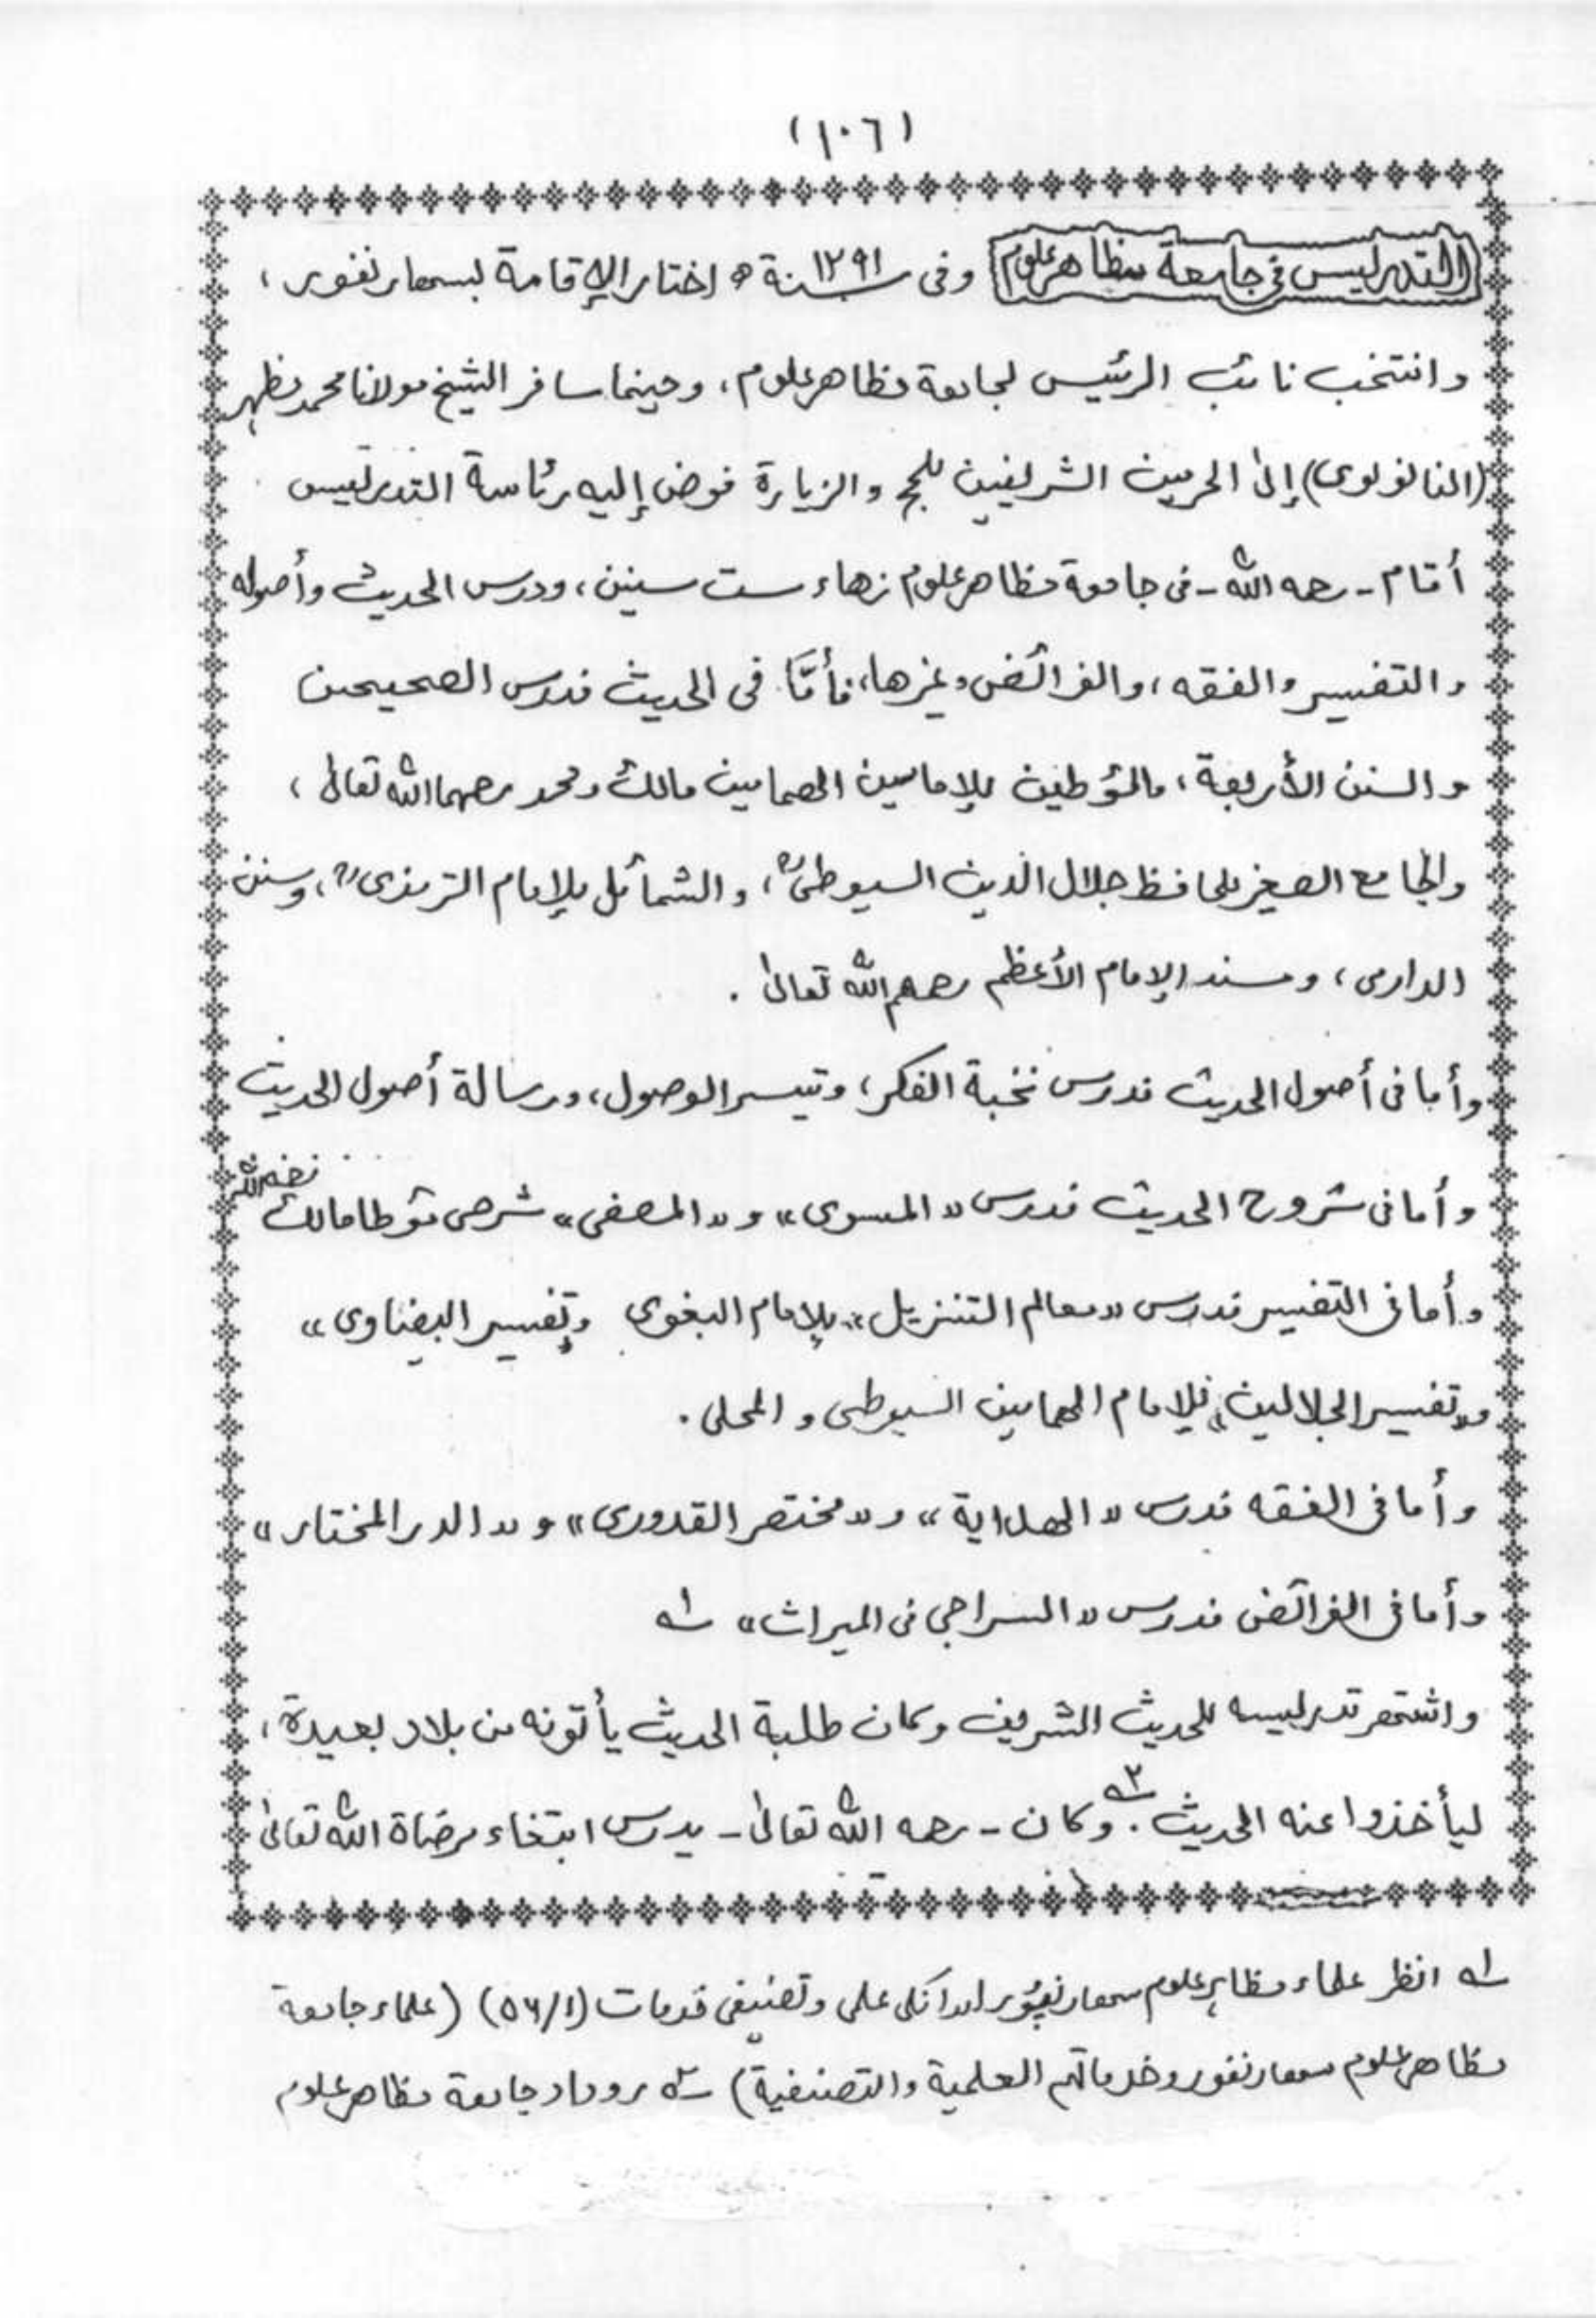 (١٠٦)
التدريس في جامعة مظاهر علوم وفى سنة ١٢٩١ھ اختار الإقامة بسهارنفور ،
وانتخب نائب الرئيس لجامعة مظاهر علوم ، وحينما سافر الشيخ مولانا محمد مظهر
(النانوتوى) إلى الحرمين الشريفين للحج والزيارة فوض إليه رئاسة التدريس
أقام - رحمه الله - فى جامعة مظاهر علوم زهاء ست سنين ، ودرس الحديث وأصوله
والتفسير والفقه ، والفرائض وغيرها ، فأمّا فى الحديث فدرس الصحيحين
والسنن الأربعة ، والمؤطين للإمامين الهمامين مالك ومحمد رحمهما الله تعالى ،
والجامع الصغير للحافظ جلال الدين السيوطى ، والشمائل للإمام الترمذى ، وسنن
الدارمى ، ومسند الإمام الأعظم رحمهم الله تعالى .
وأما فى أصول الحديث فدرس نخبة الفكر ، وتيسر الوصول ، ورسالة أصول الحديث
وأما فى شروح الحديث فدرس «المسوى» و «المصفى» شرحى مؤطا مالك
وأما فى التفسير فدرس «معالم التنزيل» للإمام البغوى وتفسير البيضاوى»
و«تفسير الجلالين» للإمام الهمامين السيوطى والمحلى .
وأما فى الفقه فدرس «الهداية» و «مختصر القدورى» و «الدر المختار»
وأما فى الفرائض فدرس «السراجى فى الميراث» ١ه
واشتهر تدريسه للحديث الشريف وكان طلبة الحديث يأتونه من بلاد بعيدة ،
ليأخذوا عنه الحديث .٢ه وكان - رحمه الله تعالى - يدرس ابتغاء مرضاة الله تعالى
١ه انظر علماء مظاہر علوم سهارنپور اور انکی علمی وتصنیفی خدمات (٥٦/١) (علماء جامعة
مظاهر علوم سهارنفور وخدماتهم العلمية والتصنيفية) ٢ه روداد جامعة مظاهر علوم